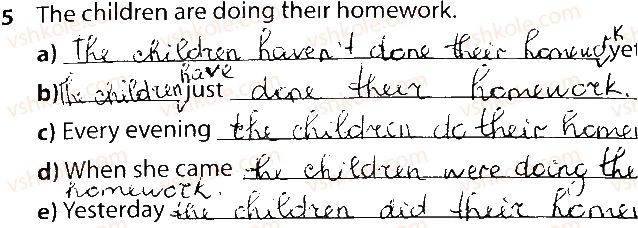 5 The children are doing their homework.
a) The children haven't done their homework yet
b) The children have just done their homework.
c) Every evening the children do their homew
d) When she came the children were doing the
homework.
e) Yesterday the children did their homew